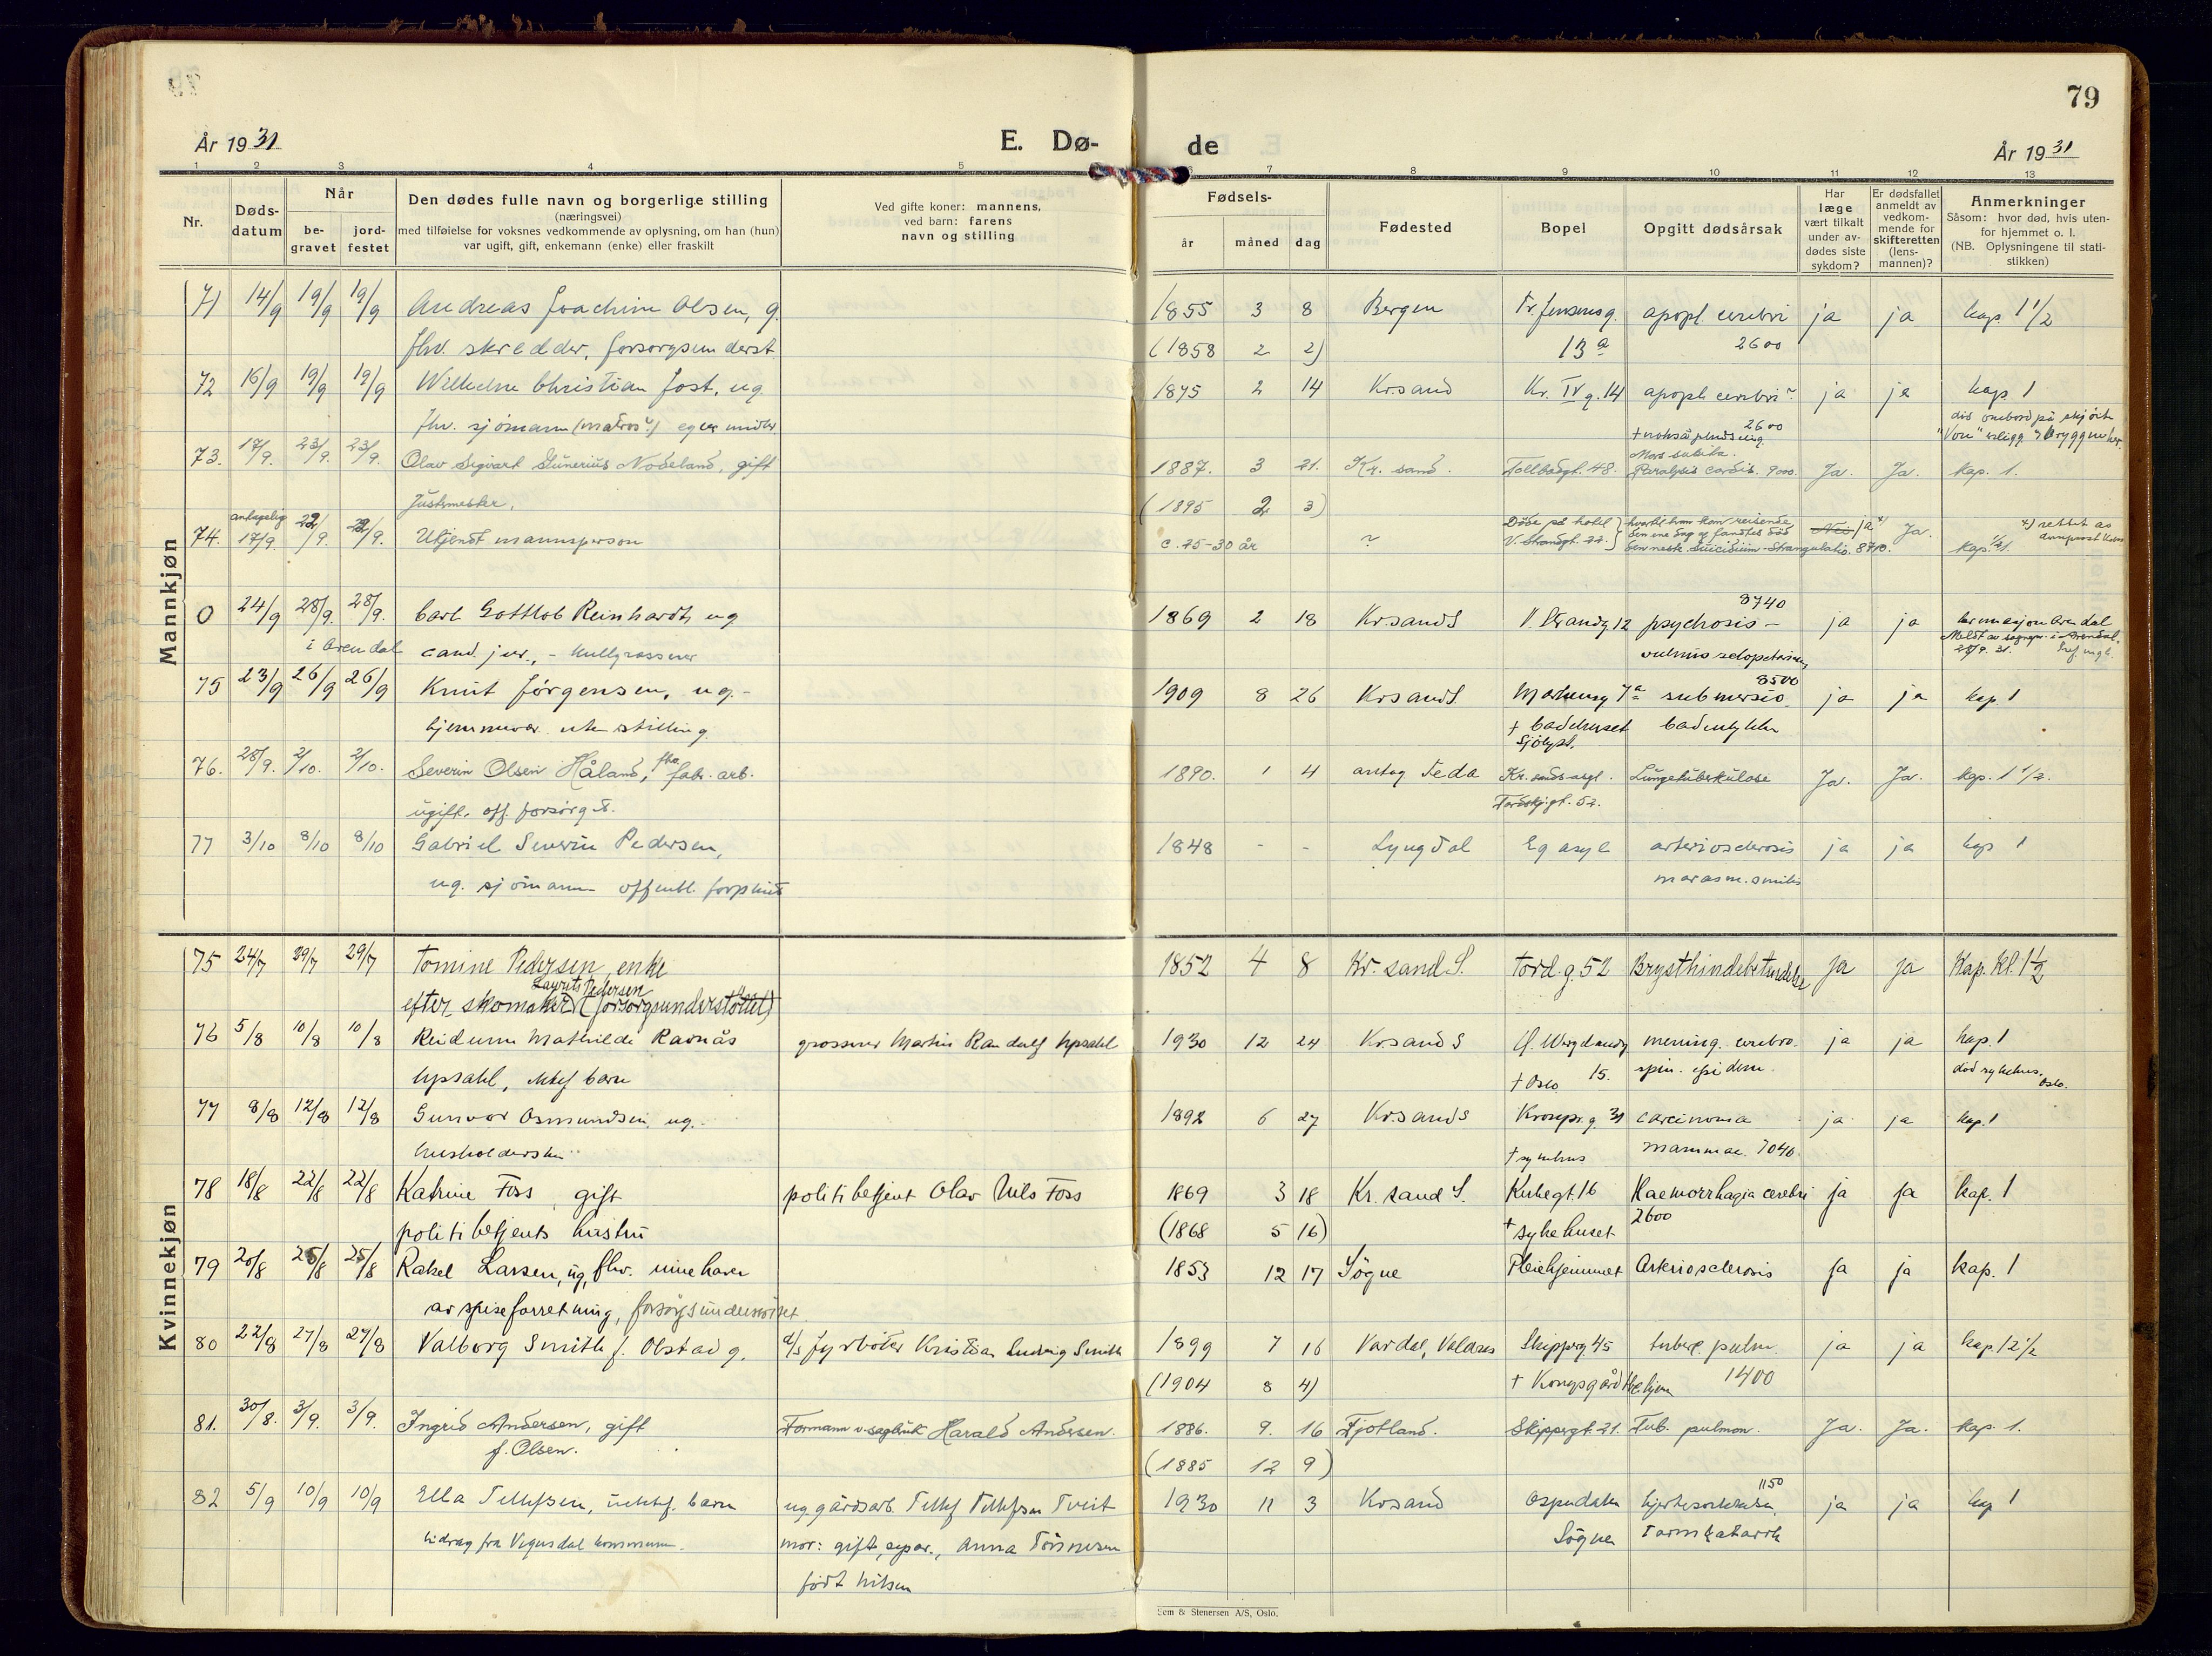 79
År 1931
E. Dø-
de
År 1931
1 2 3 4 5 6 7 8 9 10 11 12 13
Nr.
Døds-
datum
Når
be-
gravet
jord-
festet
Den dødes fulle navn og borgerlige stilling
(næringsvei)
med tilføielse for voksnes vedkommende av oplysning, om han (hun)
var ugift, gift, enkemann (enke) eller fraskilt
Ved gifte koner: mannens,
ved barn: farens
navn og stilling
Fødsels-
år måned dag
Fødested
Bopel
Opgitt dødsårsak
Har
læge
vært tilkalt
under av-
dødes siste
sykdom?
Er dødsfallet
anmeldt av
vedkom-
mende for
skifteretten
(lens-
mannen)?
Anmerkninger
Såsom: hvor død, hvis uten-
for hjemmet o. l.
(NB. Oplysningene til stati-
stikken)
Mannkjøn
71 14/9 19/9 19/9 Andreas Joachim Olsen, g. 1855 3 8 Bergen Tr. Jensens g. apopl cerebri ja ja kap. 1 1/2
fhv. skredder, forsorgsunderst (1858 2 2) 13 a 2600
72 16/9 19/9 19/9 Wilhelm Christian Jost, ug 1875 2 14 Kr.sand Kr. IV g. 14 apopl. cerebri ja ja kap. 1
fhv. sjømann (matros) 2600
73. 17/9. 23/9. 23/9. Olav Sigvart Nodeland, gift 1887. 3 21. Kr. sand. Tollbodgt. 48. Mors subita. Paralysis cordis. 9000. Ja. Ja. kap. 1.
Justermester. (1895 2 3)
74. antagelig 17/9. 22/9. 22/9. Ukjendt mannsperson c. 25-30 år ? Døde på hotel V. Strandgt. 22. hvortil han kom reisende den ene dag og fandtes død den neste. Suicidium - Strangulatio. 8710. Nei ja x) Ja. kap. 1/2 1. x) rettet av
0 24/9 28/9. 28/9. Carl Gottlob Reinhardt, ug 1869 2 18 Kr.sand S V. Strandg 12 psychosis - 8740 ja ja kremasjon Arendal
i Arendal cand. jur., - kullgrosserer vulnus sclopetarium
75 23/9 26/9 26/9 Knut Jørgensen, ug. - 1909 8 26 Krsand S. 7 a submersio 8500 ja ja kap. 1
hjemmevær. uten stilling. + badehuset badeulykke
76. 28/9. 2/10. 2/10. Severin Olsen Håland, fhv. fabr. arb. 1890. 1 4 antag Feda Kr. sands asyl. Lungetuberkulose Ja. Ja. kap. 1 1/2.
ugift, off. forsørget.
77 3/10 8/10 8/10 Gabriel Severin Pedersen, 1848 - - Lyngdal Eg asyl arteriosclerosis ja ja kap 1
ug. sjømann offentl. forpleiet marasm. senilis
Kvinnekjøn
75 24/7 29/7 29/7 Tomine Pedersen, enke 1852 4 8 Kr. sand S. Tord.g. 52 Brysthindebetændelse ja ja Kap. Kl. 1 1/2
Laurits Pedersen
efter skomaker (forsorgsunderstøttet)
76 5/8 10/8 10/8 Reidunn Mathilde Ravnås grosserer Martin Randulf Upsahl 1930 12 24 Krsand S H. Wergelandsg mening. cerebro. ja ja kap. 1
Upsahl, ektef barn + Oslo 15. spin. epidem. død sykehus, Oslo.
77 8/8 12/8 12/8 Gunvor Osmundsen, ug. 1892 6 27 Krsand S Kronpr.g. 31 carcinoma ja ja kap. 1
husholderske + sykehus mammae 1040.
78 18/8 22/8 22/8 Katrine Foss, gift politibetjent Olav Nils Foss 1869 3 18 Kr. sand S. Kirkegt. 16 Haemorrhagia cerebri ja ja kap. 1
politibetjents hustru (1868 5 16) + sykehuset 2600
79 20/8 25/8 25/8 Rakel Larsen, ug, fhv. innehaver 1853 12 17 Søgne Pleiehjemmet Arteriosclerosis ja ja kap. 1
av spiseforretning, forsorgsunderstøttet
80 22/8 27/8 27/8 Valborg Smith f. Olstad g. d/s fyrbøter Kristian Ludvig Smith 1899 7 16 Vardal, Valdres Skipperg. 45 tuberc. pulm. ja ja kap. 12 1/2
(1904 8 4) + Kongsgård 1400
81. 30/8. 3/9. 3/9. Ingrid Andersen, gift Formann v. sagbruk Harald Andersen. 1886. 9. 16 Fjotland. Skippergt. 21. Tub. pulmon. Ja. Ja. kap. 1.
f. Olsen. (1885 12 9)
82 5/9 10/9 10/9 Ella Tellefsen, uektef. barn ug. gårdsarb. Tellef Tellefsen Tveit 1930 11 3 Krsand Ospedalen 1150 ja ja kap 1
bidrag fra Vegusdal kommune. mor: gift, separ., Anna Tønnesen Søgne Tarmkatarrh
født Nilsen
Sem & Stenersen A/S, Oslo.